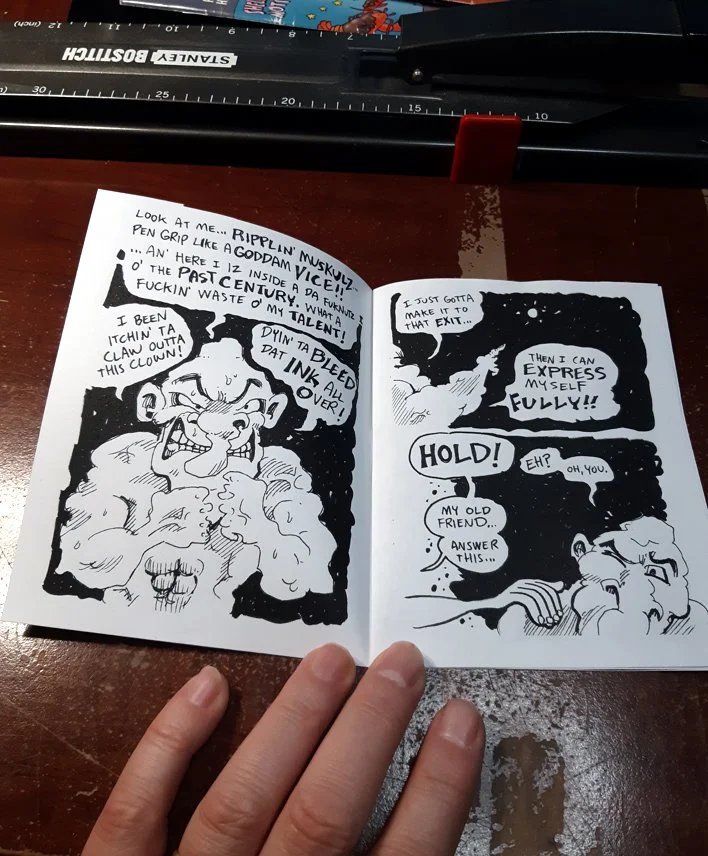 STANLEY BOSTITCH
(inch) 12 11 10 9 8
30 25 20 15 10
LOOK AT ME... RIPPLIN' MUSKULZ...
PEN GRIP LIKE A GODDAM VICE!!
... AN' HERE I IZ INSIDE A DA FURNUTZ
O' THE PAST CENTURY. WHAT A
FUCKIN' WASTE O' MY TALENT!
I BEEN
ITCHIN' TA
CLAW OUTTA
THIS CLOWN!
DYIN' TA BLEED
DAT INK ALL
OVER!
I JUST GOTTA
MAKE IT TO
THAT EXIT...
THEN I CAN
EXPRESS
MYSELF
FULLY!!
HOLD!
EH?
OH, YOU.
MY OLD
FRIEND...
ANSWER
THIS...